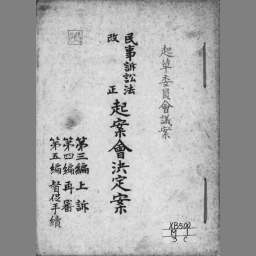 起草委員會議案
民事訴訟法
改正
起案會決定案
第三編 上訴
第四編 再審
第五編 督促手續
XB500
M1